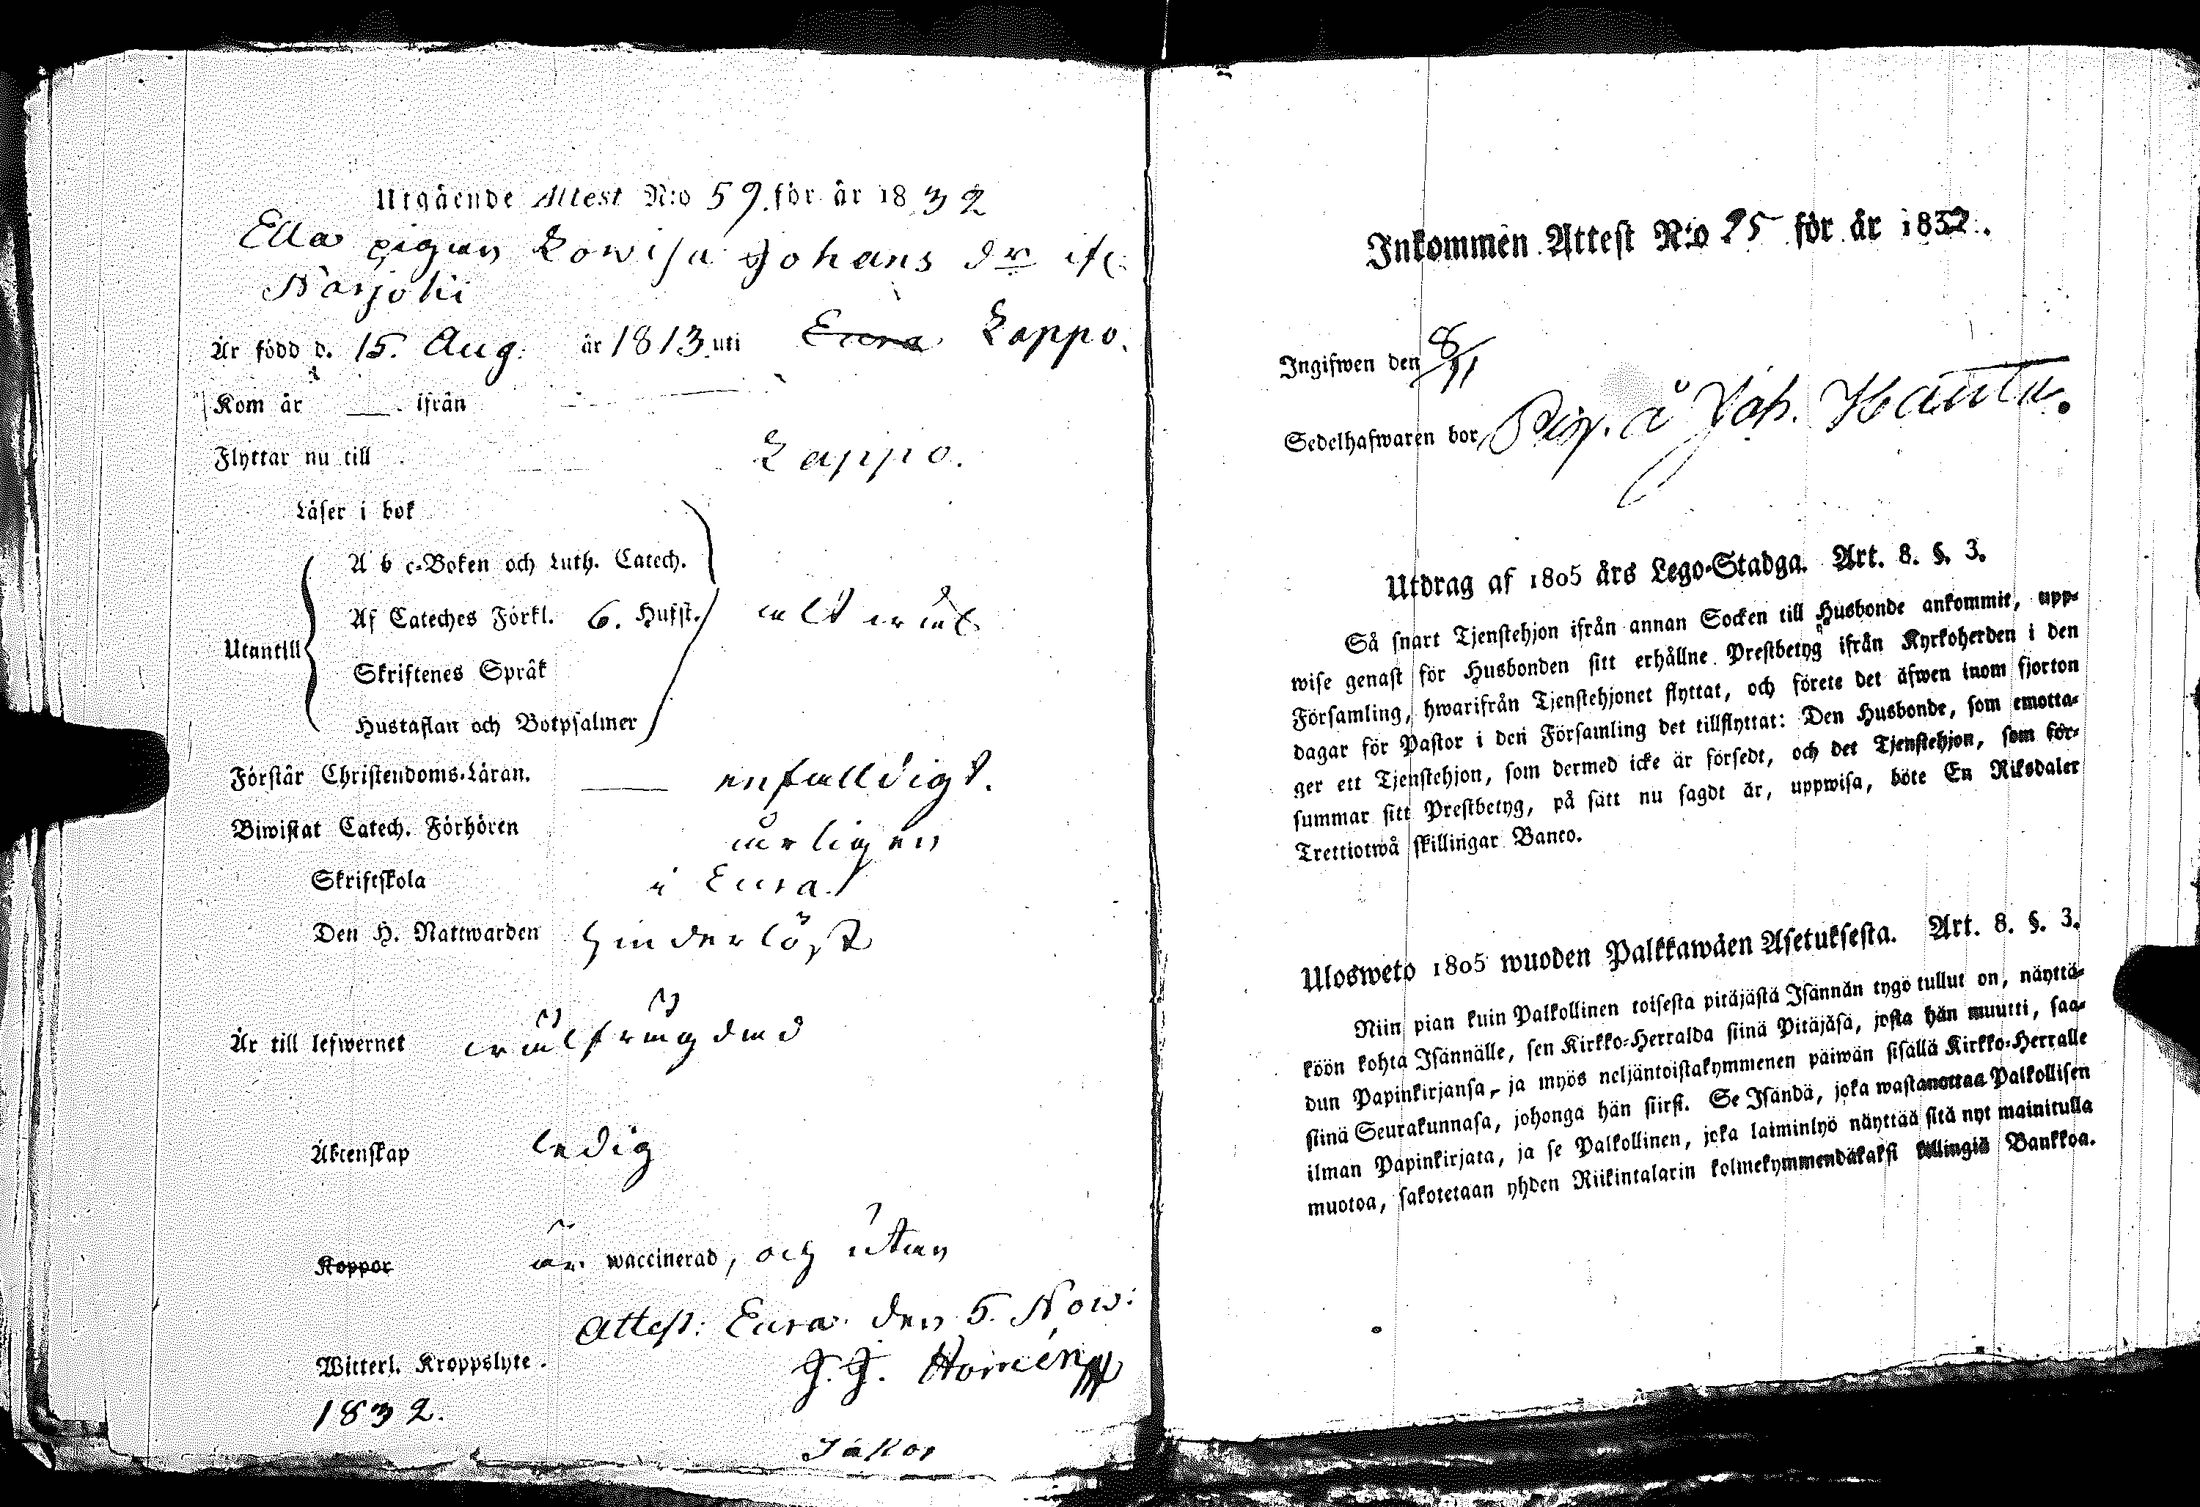 Utgående Attest N:o 59. för år 1832
pigan Lowisa Johans dr
Är född d. 15. Aug. år 1813 uti Eura Lappo.
Kom år — ifrån
Flyttar nu till Lappo.
Läser i bok
A b c-Boken och Luth. Catech.
Af Cateches Förkl. 6. Hufst. alt wäl
Utantill
Skriftenes Språk
Hustaflan och Botpsalmer
Förstår Christendoms-Läran. — enfalldigt.
Biwistat Catech. Förhören årligen
Skriftskola i Eura.
Den H. Nattwarden hinderlöst
Är till lefwernet wälfrägdad
Äktenskap ledig
Koppor är waccinerad, och utan
Attest: Eura den 5. Now:
Witterl. Kroppslyte.
1832.
Inkommen Attest N:o 25 för år 1832.
Ingifwen den 8/11
Sedelhafwaren bor Pig. å Joh.
Utdrag af 1805 års Lego-Stadga. Art. 8. §. 3.
Så snart Tjenstehjon ifrån annan Socken till Husbonde ankommit, upp-
wise genast för Husbonden sitt erhållne Prestbetyg ifrån Kyrkoherden i den
Församling, hwarifrån Tjenstehjonet flyttat, och förete det äfwen inom fjorton
dagar för Pastor i den Församling det tillflyttat: Den Husbonde, som emotta-
ger ett Tjenstehjon, som dermed icke är försedt, och det Tjenstehjon, som för-
summar sitt Prestbetyg, på sätt nu sagdt är, uppwisa, böte En Riksdaler
Trettiotwå skillingar Banco.
Ulosweto 1805 wuoden Palkkawäen Asetuksesta. Art. 8. §. 3.
Niin pian kuin Palkollinen toisesta pitäjästä Isännän tygö tullut on, näyttä-
köön kohta Isännälle, sen Kirkko-Herralda siinä Pitäjäsä, josta hän muutti, saa-
dun Papinkirjansa, ja myös neljäntoistakymmenen päiwän sisällä Kirkko-Herralle
siinä Seurakunnasa, johonga hän siirsi. Se Isändä, joka wastanottaa Palkollisen
ilman Papinkirjata, ja se Palkollinen, joka laiminlyö näyttää sitä nyt mainitulla
muotoa, sakotetaan yhden Riikintalarin kolmekymmendäkaksi killingiä Bankkoa.